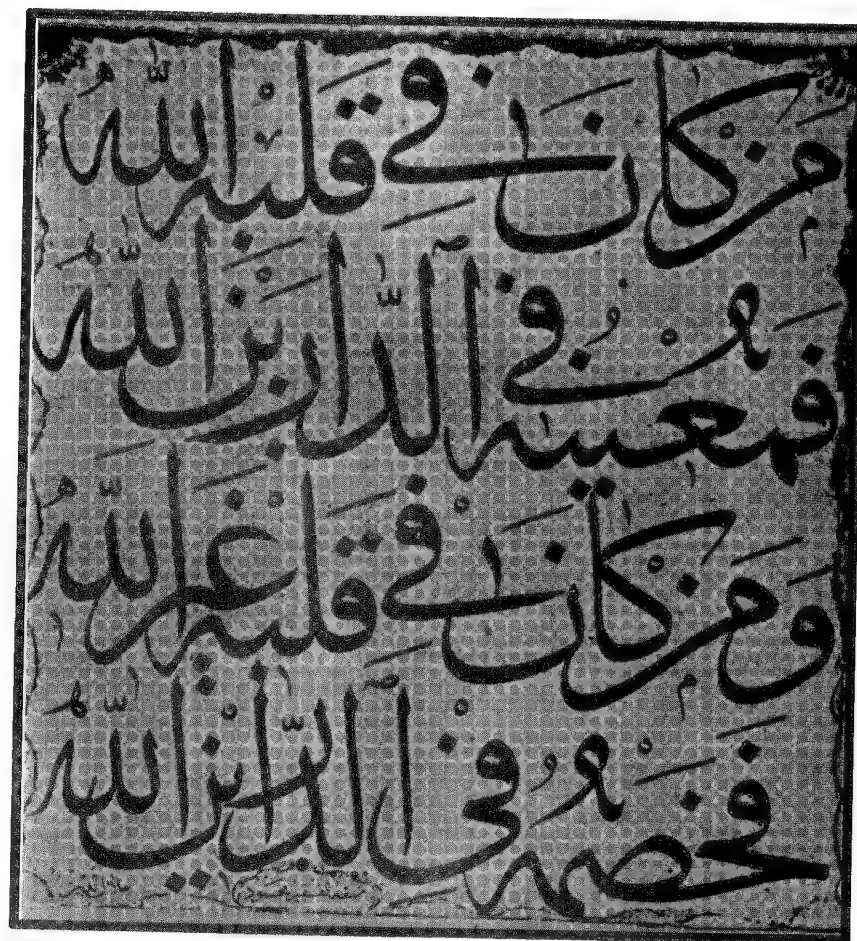 مَن كَانَ فِي قَلْبِهِ اللّٰهُ
فَمُعِينُهُ فِي ٱلدَّارَيْنِ اللّٰهُ
وَمَن كَانَ فِي قَلْبِهِ غَيْرُ اللّٰهِ
فَخَصْمُهُ فِي ٱلدَّارَيْنِ اللّٰهُ